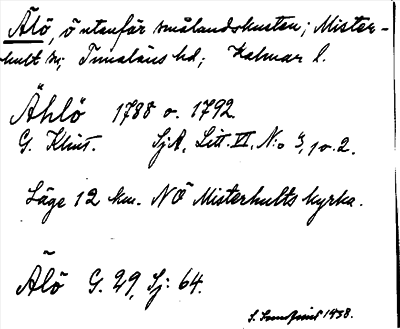 Älö, ö utanför smålandskusten; Mister-
hult sn; Tunaläns hd; Kalmar l.
Ählö 1788 o. 1792
G. Klint. SjA, Litt. VI, N:o 3, 1 o. 2.
Läge 12 km. NÖ Misterhults kyrka.
Älö G. 29, Sj: 64.
1938.